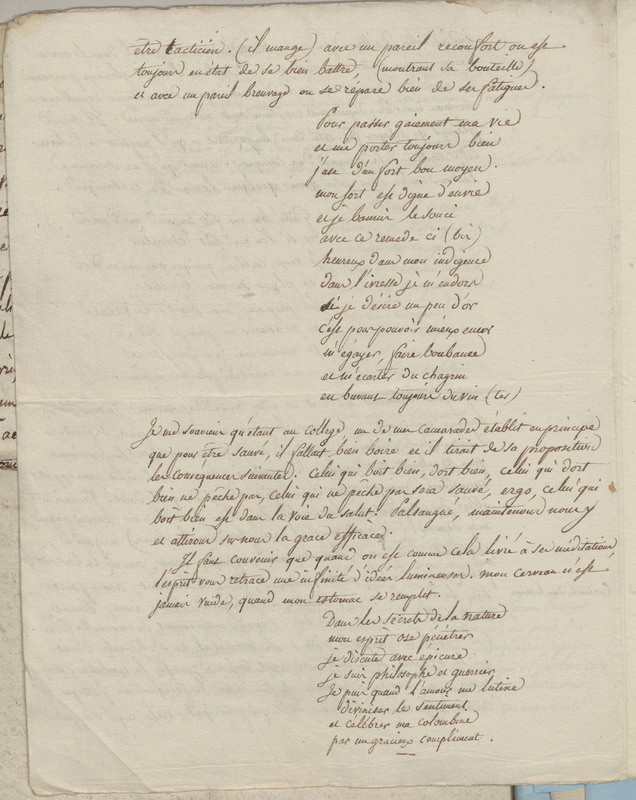 être tacticien. (il mange) avec un pareil reconfort on est
toujour en état de se bien battre, (montrant sa bouteille)
et avec un pareil breuvage on se répare bien de ses fatigues.
Pour passer gaiement ma vie
et me porter toujours bien
j'use d'un fort bon moyen.
mon sort est digne d'envie
et je bannis le souci
avec ce remede ci (bis)
heureux dans mon indigence
dans l'ivresse je m'endors
si je désire un peu d'or
c'est pour pouvoir mieux encor
m'égayer, faire bombance
et m'écarter du chagrin
en buvant toujours du vin (ter)
Je me souviens qu'étant au college un de mes camarades établit en principe
que pour être sauvé, il fallait bien boire et il tirait de sa proposition
les conséquences suivantes. Celui qui boit bien, dort bien, celui qui dort
bien ne pêche pas, celui qui ne pêche pas sera sauvé, ergo, celui qui
boit bien est dans la voie du salut. Palsangué, maintenons nous y
et attirons sur nous la grace efficace.
Il faut convenir que quand on est comme cela livré à ses méditations,
l'esprit vous retrace une infinité d'idées lumineuses. mon cerveau n'est
jamais vuide, quand mon estomac se remplit.
Dans les secrets de la nature
mon esprit ose pénétrer
je discute avec épicure
je suis philosophe et guerrier
Je puis quand l'amour me lutine
diviniser le sentiment
et célébrer ma colombine
par un gracieux compliment.